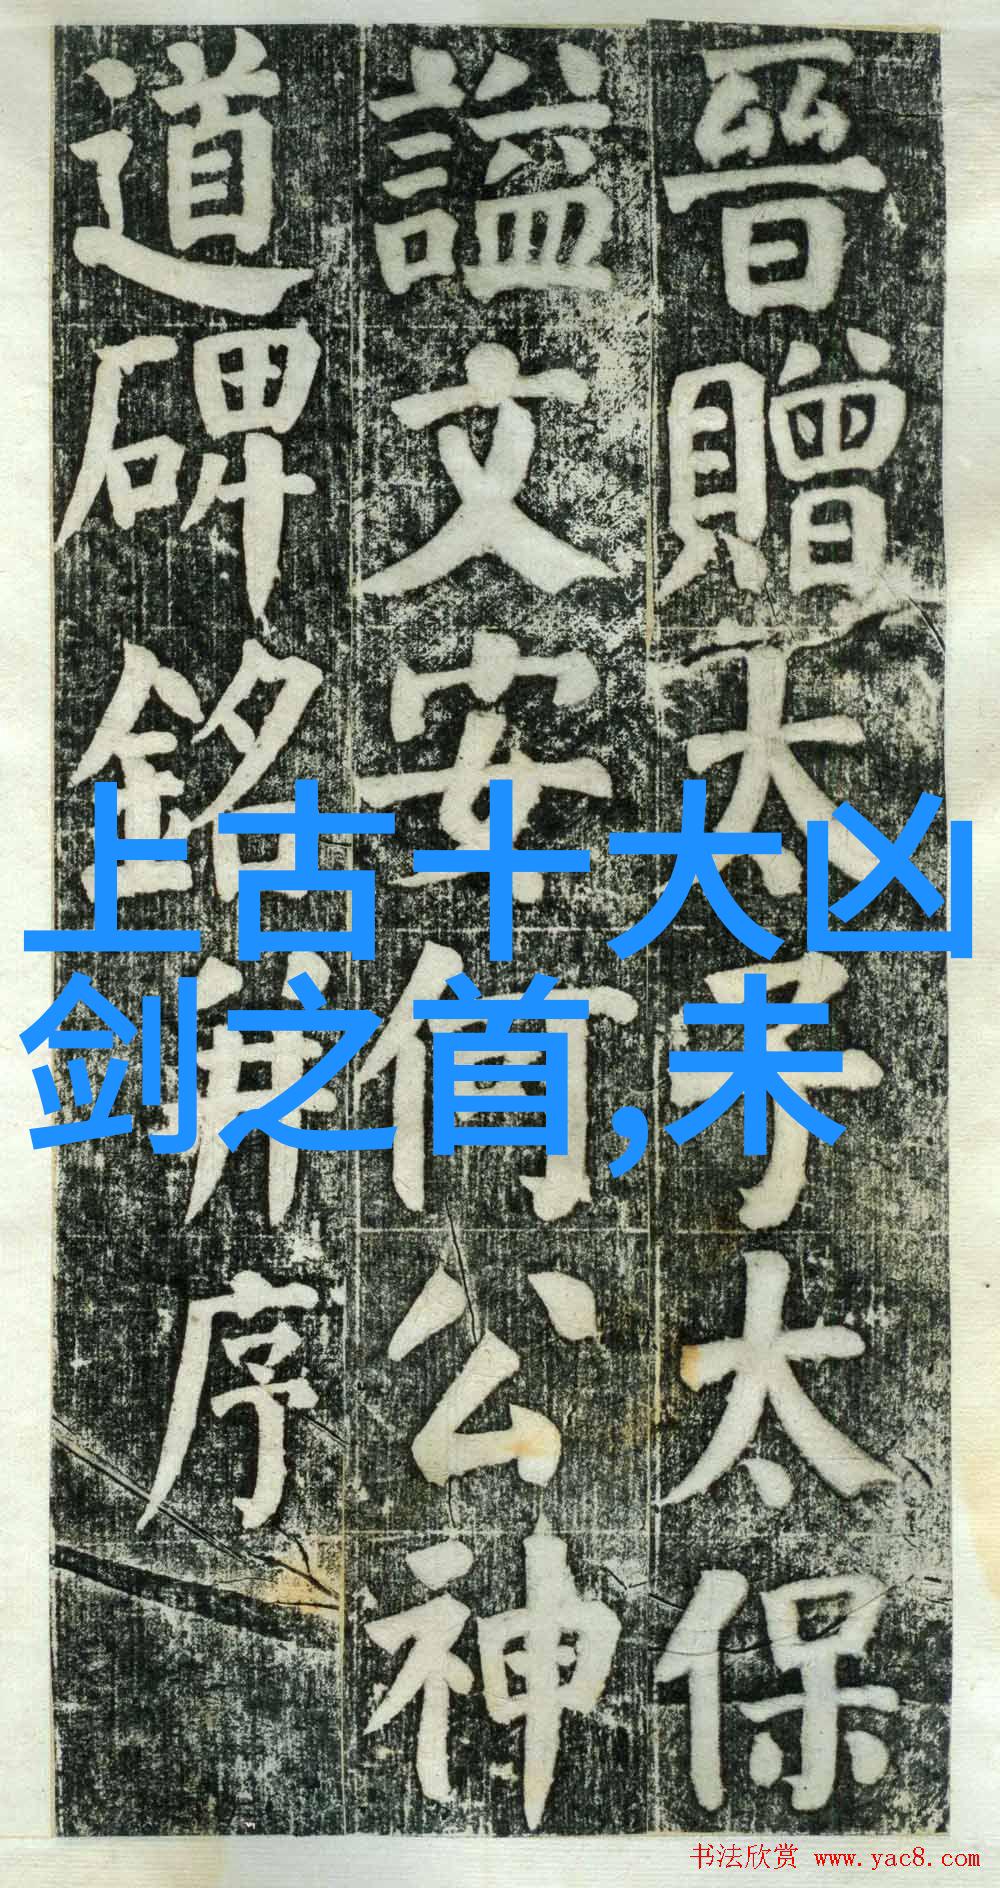 晉贈太子太保
謚文安何公神
道碑銘并序
上古十大凶
剑之首,未
书法欣赏 www.yac8.com